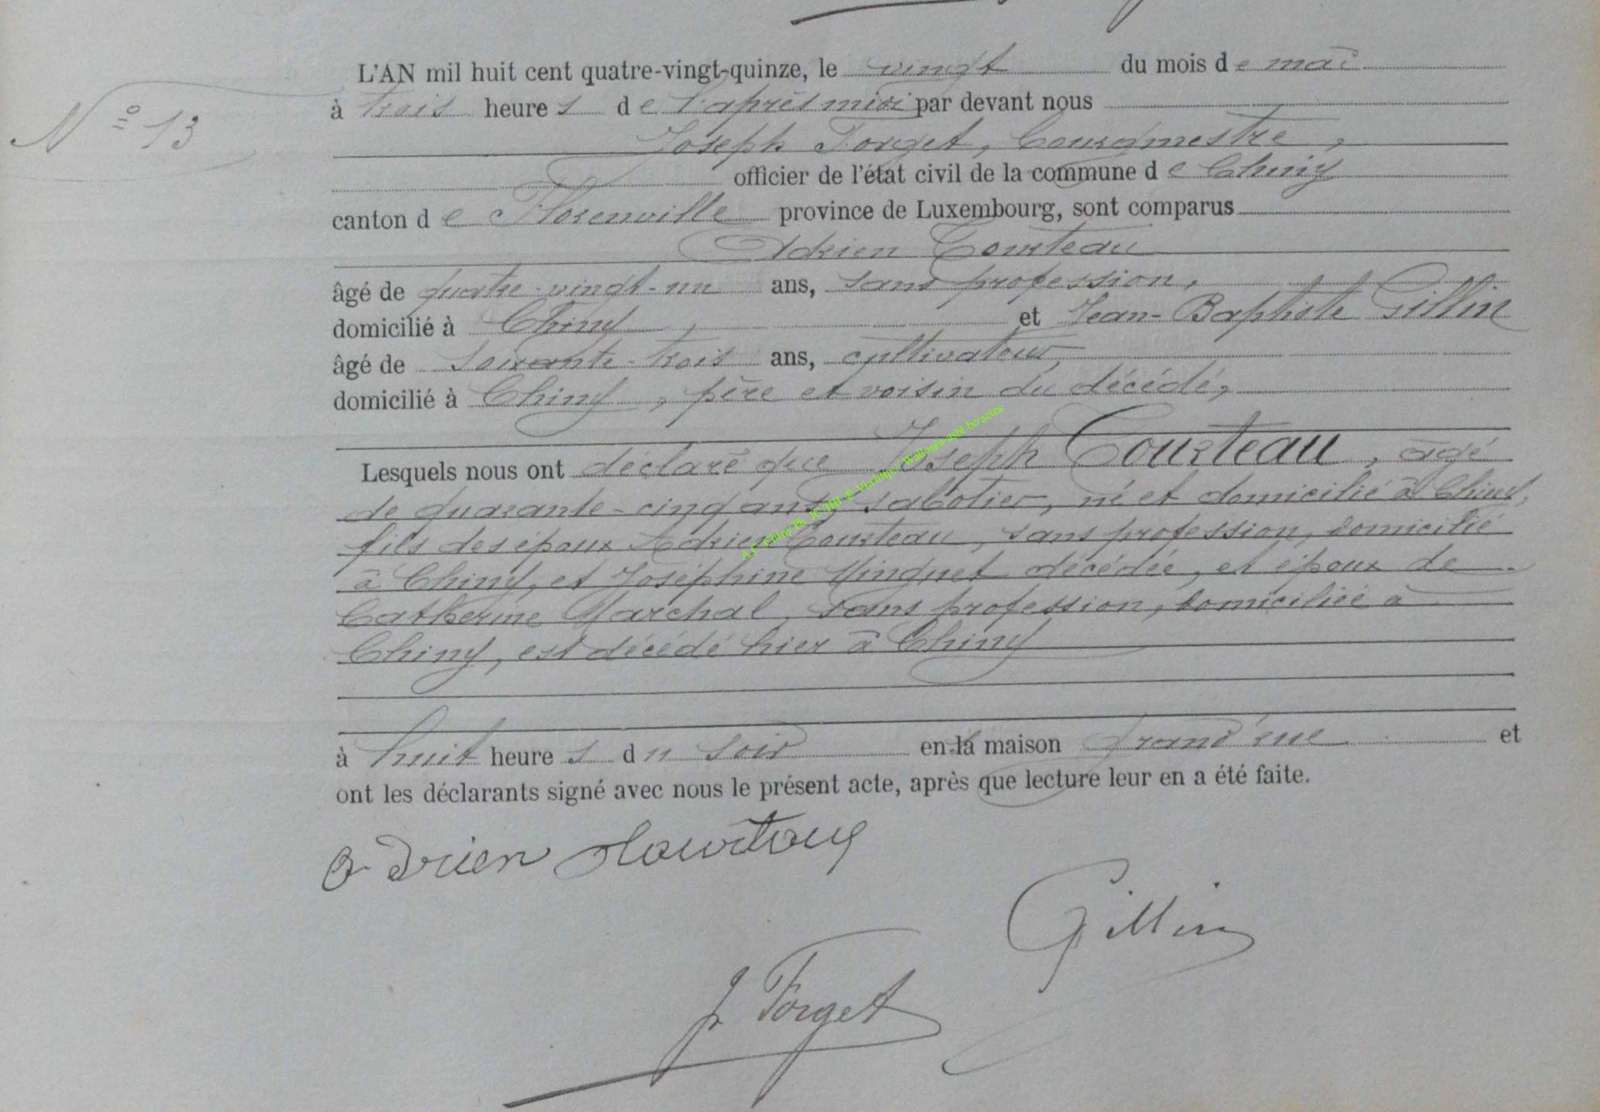 L'AN mil huit cent quatre-vingt-quinze, le vingt du mois de mai
N° 13
à trois heures de l'après midi par devant nous
Joseph Forget, Bourgmestre,
officier de l'état civil de la commune de Chiny
canton de Florenville province de Luxembourg, sont comparus
Adrien Courteau
âgé de quatre-vingt-un ans, sans profession,
domicilié à Chiny, et Jean-Baptiste Gillin
âgé de soixante-trois ans, cultivateur,
domicilié à Chiny, père et voisin du décédé,
Lesquels nous ont déclaré que Joseph Courteau, âgé
de quarante-cinq ans, sabotier, né et domicilié à Chiny,
fils des époux Adrien Courteau, sans profession, domicilié
à Chiny, et Joséphine décédée, et époux de
Catherine Marchal, sans profession, domiciliée à
Chiny, est décédé hier à Chiny
à huit heures du soir en la maison grand'rue et
ont les déclarants signé avec nous le présent acte, après que lecture leur en a été faite.
Adrien
Gillin
J Forget